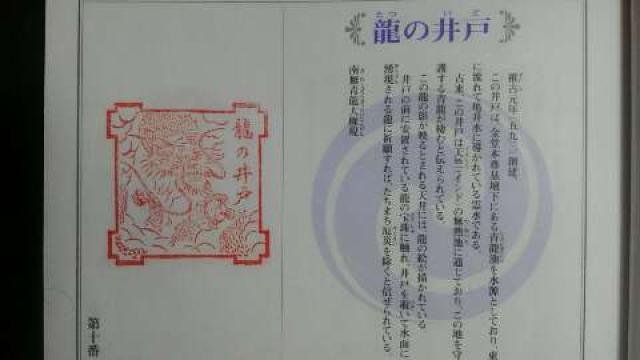 龍の井戸
たつ い ど
推古元年(五九三)創建。
この井戸は、金堂本尊基壇下にある青龍池を水源としており、東
に流れて亀井水に導かれている霊水である。
古来、この井戸は天竺(インド)の無熱池に通じており、この地を守
護する青龍が棲むと伝えられている。
この龍の影が映るとされる天井には、龍の絵が描かれている。
井戸の前に安置されている龍の宝珠に触れ、井戸を覗いて水面に
湧現される龍に祈願すれば、たちまち厄災を除くと信ぜられている。
南無青龍大権現
龍の井戸
第十番